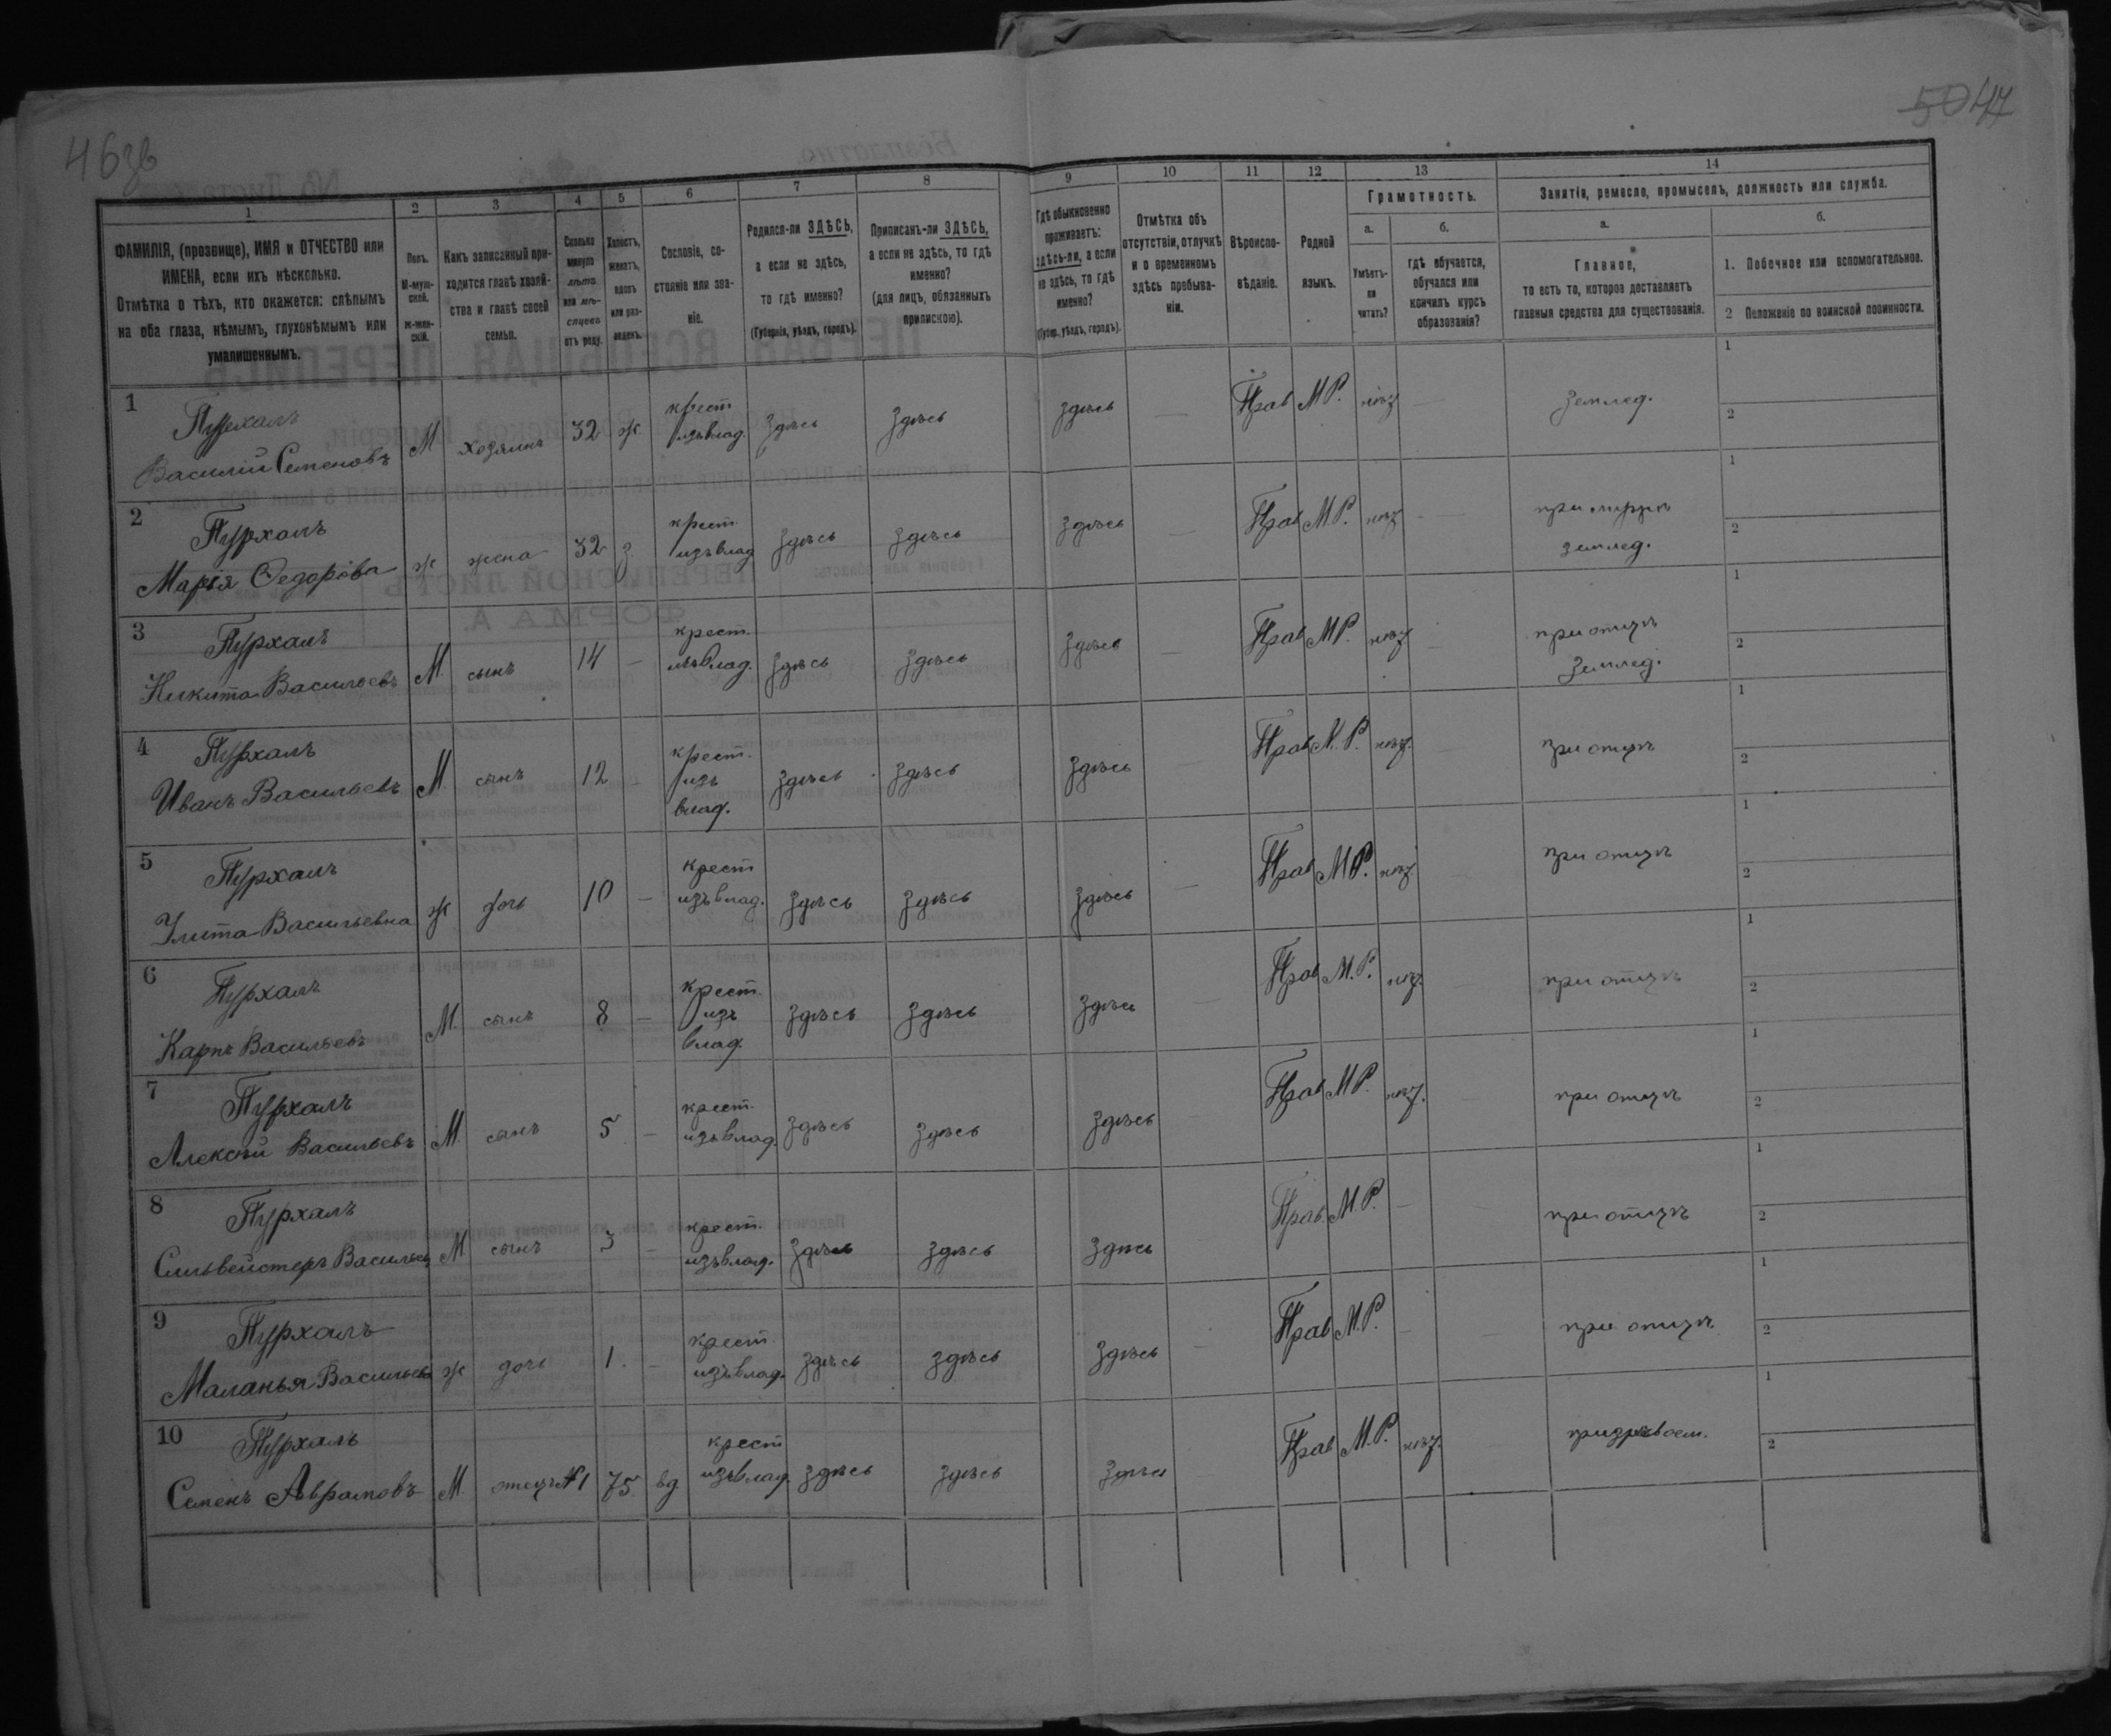 46зв
50 47
1
2
3
4
5
6
7
8
9
10
11
12
13
14
ФАМИЛІЯ, (прозвище), ИМЯ и ОТЧЕСТВО или
ИМЕНА, если ихъ нѣсколько.
Отмѣтка о тѣхъ, кто окажется: слѣпымъ
на оба глаза, нѣмымъ, глухонѣмымъ или
умалишеннымъ.
Полъ.
М-муж-
ской.
ж-жен-
скій.
Какъ записанный при-
ходится главѣ хозяй-
ства и главѣ своей
семьи.
Сколько
минуло
лѣтъ
или мѣ-
сяцевъ
отъ роду.
Холостъ,
женатъ,
вдовъ
или раз-
веденъ.
Сословіе, со-
стояніе или зва-
ніе.
Родился-ли ЗДѢСЬ,
а если не здѣсь,
то гдѣ именно?
(Губернія, уѣздъ, городъ).
Приписанъ-ли ЗДѢСЬ,
а если не здѣсь, то гдѣ
именно?
(для лицъ, обязанныхъ
припискою).
Гдѣ обыкновенно
проживаетъ:
здѣсь-ли, а если
не здѣсь, то гдѣ
именно?
(Губер., уѣздъ, городъ).
Отмѣтка объ
отсутствіи, отлучкѣ
и о временномъ
здѣсь пребыва-
ніи.
Вѣроиспо-
вѣданіе.
Родной
языкъ.
Грамотность.
а.
Умѣетъ-
ли
читать?
б.
гдѣ обучается,
обучался или
кончилъ курсъ
образованія?
Занятія, ремесло, промыселъ, должность или служба.
а.
Главное,
то есть то, которое доставляетъ
главныя средства для существованія.
б.
1. Побочное или вспомогательное.
2 Положеніе по воинской повинности.
1
Пурхалъ
Василій Семеновъ
М хозяинъ 32 ж. крест изъ влад. здѣсь здѣсь здѣсь — Прав М Р. нѣт — землед.
1
2
2
Пурхалъ
Марья Федорова
ж жена 32 з. крест. изъ влад здѣсь здѣсь здѣсь — Прав М.Р. нѣт — при мужѣ
землед.
1
2
3
Пурхалъ
Никита Васильевъ
М. сынъ 14 — крест. изъ влад. здѣсь здѣсь здѣсь — Прав М Р. нѣт — при отцѣ
землед.
1
2
4
Пурхалъ
Иванъ Васильевъ
М сынъ 12 — крест. изъ влад. здѣсь здѣсь здѣсь — Прав М. Р. нѣт. — при отцѣ
1
2
5
Пурхалъ
Улита Васильевна
ж дочь 10 — крест изъ влад. здѣсь здѣсь здѣсь — Прав М Р. нѣт — при отцѣ
1
2
6
Пурхалъ
Карпъ Васильевъ
М. сынъ 8 — крест. изъ влад. здѣсь здѣсь здѣсь — Прав М.Р. нѣт. — при отцѣ
1
2
7
Пурхалъ
Алексѣй Васильевъ
М. сынъ 5 — крест. изъ влад. здѣсь здѣсь здѣсь — Прав М Р. нѣт. — при отцѣ
1
2
8
Пурхалъ
Сильвейстеръ Васильев
М сынъ 3 — крест. изъ влад. здѣсь здѣсь здѣсь Прав М.Р. — при отцѣ
1
2
9
Пурхалъ
Маланья Васильевна
ж дочь 1. — крест. изъ влад. здѣсь здѣсь здѣсь — Прав М.Р. — — при отцѣ
1
2
10
Пурхалъ
Семенъ Аврамовъ
М. отецъ №1 75 вд крест изъ влад. здѣсь здѣсь здѣсь Прав М.Р. нѣт.
1
2